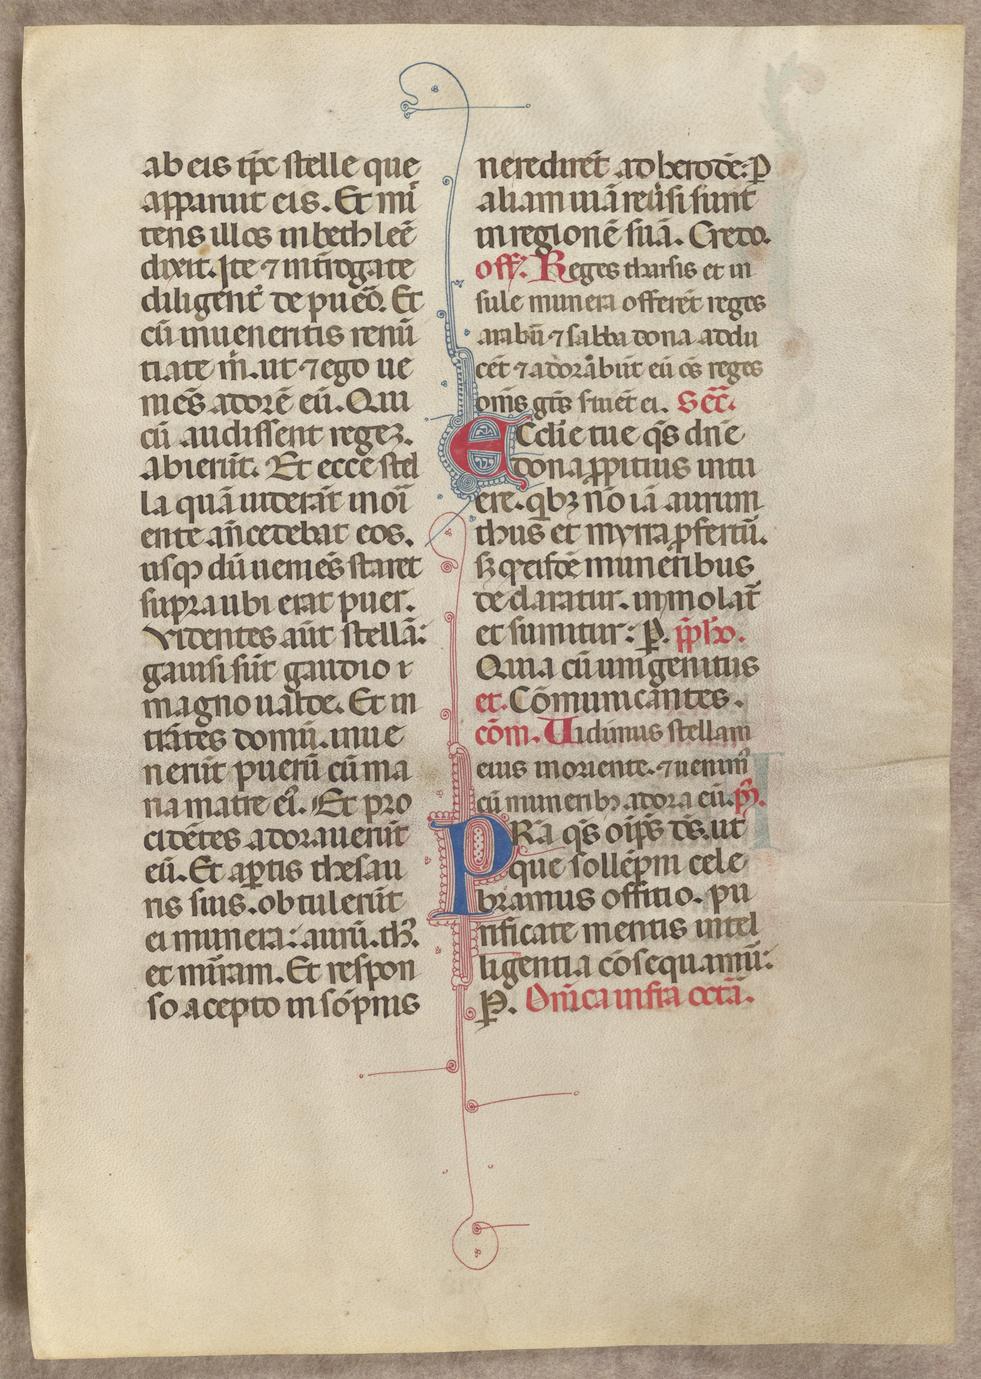 ab eis tp̄c stelle que
apparuit eis. Et mit
tens illos in bethleē
dixit. Ite ⁊ int̄rogate
diligent̄ de puēō. Et
cū inueneritis renū
tiate m̄. ut ⁊ ego ue
niēs adorē eū. Qui
cū audissent regeꝫ.
abierūt. Et ecce stel
la quā uiderāt in ori
ente añcedebat eos.
usqꝫ dū ueniēs staret
supra ubi erat puer.
Videntes aūt stellā:
gauisi sūt gaudio
magno ualde. Et in
trātes domū. inue
nerūt puerū cū ma
ria matre eiꝰ. Et pro
cidētes adorauerūt
eū. Et aꝑtis thesau
ris suis. obtulerūt
ei munera: aurū. thꝰ.
et mirram. Et respon
so acepto in sōpnis
ne redirēt ad herodē: ꝑ
aliam uiā reũsi sunt
in regionē suā. Credo.
off. Reges tharsis et in
sule munera offerēt reges
arabū ⁊ sabba dona addu
cēt ⁊ adorabūt eū ōs reges
om̄s gētes s̄uiēt ei. Sec̄.
Ecclīe tue q̄s dn̄e
dona ꝓpitius intu
ere. qbꝫ nō iā aurum
thus et myrra ꝓfertū.
sꝫ qd̄ eisdē muneribus
declaratur. inmolat̄
et sumitur: P. p̄pho.
Quia cū unigenitus
et. Cōmunicantes.
cōm. Uidimus stellam
eius in oriente. ⁊ uenimꝰ
cū muneribꝫ adorare eū. p̄9.
PRa q̄s oīp̄s ds̄. ut
que sollēpni cele
bramus offitio. pu
rificate mentis intel
ligentia cōsequamur:
P. Dn̄ica infra octā.